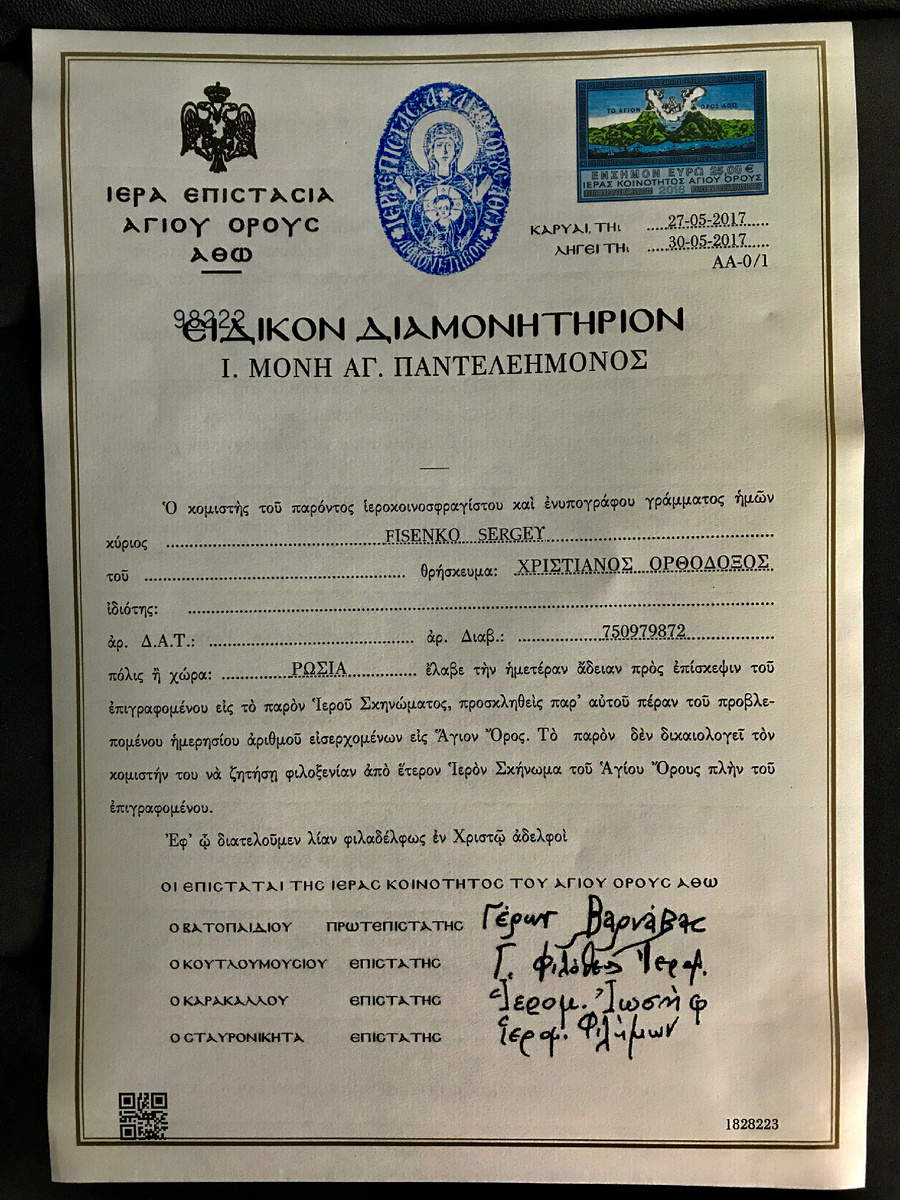 ΙΕΡΑ ΕΠΙΣΤΑΣΙΑ
ΑΓΙΟΥ ΟΡΟΥΣ
ΑΘΩ
ΙΕΡΑ ΕΠΙΣΤΑΣΙΑ ΑΓΙΟΥ ΟΡΟΥΣ ΑΘΩ
ΤΟ ΑΓΙΟΝ ΟΡΟΣ ΑΘΩ
ΕΝΣΗΜΟΝ ΕΥΡΩ 25,00 €
ΙΕΡΑΣ ΚΟΙΝΟΤΗΤΟΣ ΑΓΙΟΥ ΟΡΟΥΣ
2016
ΚΑΡΥΑΙ, ΤΗι 27-05-2017
ΛΗΓΕΙ ΤΗι 30-05-2017
ΑΑ-0/1
98222
ΕΙΔΙΚΟΝ ΔΙΑΜΟΝΗΤΗΡΙΟΝ
Ι. ΜΟΝΗ ΑΓ. ΠΑΝΤΕΛΕΗΜΟΝΟΣ
Ὁ κομιστὴς τοῦ παρόντος ἱεροκοινοσφραγίστου καὶ ἐνυπογράφου γράμματος ἡμῶν
κύριος FISENKO SERGEY
τοῦ θρήσκευμα: ΧΡΙΣΤΙΑΝΟΣ ΟΡΘΟΔΟΞΟΣ
ἰδιότης:
ἀρ. Δ.Α.Τ.: ἀρ. Διαβ.: 750979872
πόλις ἢ χώρα: ΡΩΣΙΑ ἔλαβε τὴν ἡμετέραν ἄδειαν πρὸς ἐπίσκεψιν τοῦ
ἐπιγραφομένου εἰς τὸ παρὸν Ἱεροῦ Σκηνώματος, προσκληθεὶς παρ' αὐτοῦ πέραν τοῦ προβλε-
πομένου ἡμερησίου ἀριθμοῦ εἰσερχομένων εἰς Ἅγιον Ὄρος. Τὸ παρὸν δὲν δικαιολογεῖ τὸν
κομιστήν του νὰ ζητήσῃ φιλοξενίαν ἀπὸ ἕτερον Ἱερὸν Σκήνωμα τοῦ Ἁγίου Ὄρους πλὴν τοῦ
ἐπιγραφομένου.
Ἐφ' ᾧ διατελοῦμεν λίαν φιλαδέλφως ἐν Χριστῷ ἀδελφοὶ
ΟΙ ΕΠΙΣΤΑΤΑΙ ΤΗΣ ΙΕΡΑΣ ΚΟΙΝΟΤΗΤΟΣ ΤΟΥ ΑΓΙΟΥ ΟΡΟΥΣ ΑΘΩ
Ο ΒΑΤΟΠΑΙΔΙΟΥ ΠΡΩΤΕΠΙΣΤΑΤΗΣ Γέρων Βαρνάβας
Ο ΚΟΥΤΛΟΥΜΟΥΣΙΟΥ ΕΠΙΣΤΑΤΗΣ Γ. Φιλόθεος Ἱερομ.
Ο ΚΑΡΑΚΑΛΛΟΥ ΕΠΙΣΤΑΤΗΣ Ἱερομ. Ἰωσὴφ
Ο ΣΤΑΥΡΟΝΙΚΗΤΑ ΕΠΙΣΤΑΤΗΣ Ἱερομ. Φιλήμων
1828223